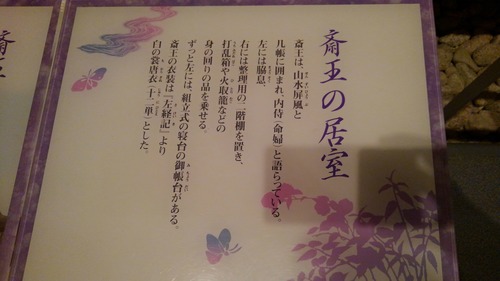 斎王の居室
斎王は、山水屏風と
几帳に囲まれ、内侍(命婦)と語らっている。
左には脇息、
右には整理用の二階棚を置き、
打乱箱や火取籠などの
身の回りの品を乗せる。
ずっと左には、組立式の寝台の御帳台がある。
斎王の衣装は『左経記』より
白の裳唐衣(十二単)とした。